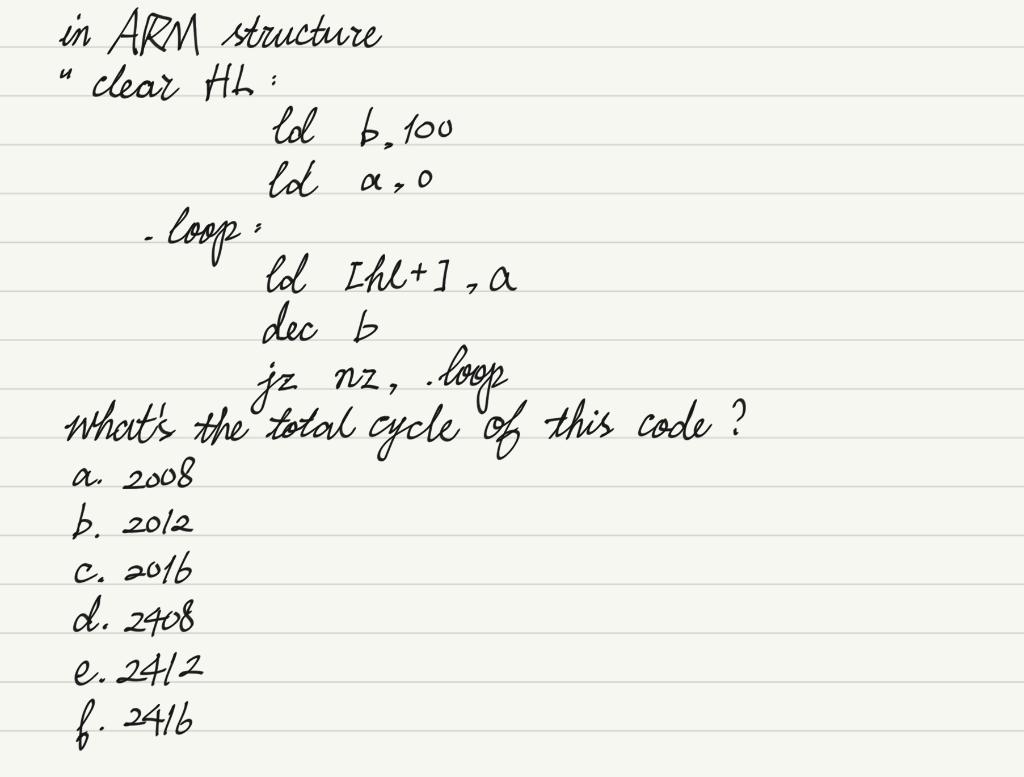 in ARM structure
" clear HL :
ld b, 100
ld a, 0
. loop :
ld [hl+], a
dec b
jz nz, .loop
What's the total cycle of this code ?
a. 2008
b. 2012
c. 2016
d. 2408
e. 2412
f. 2416